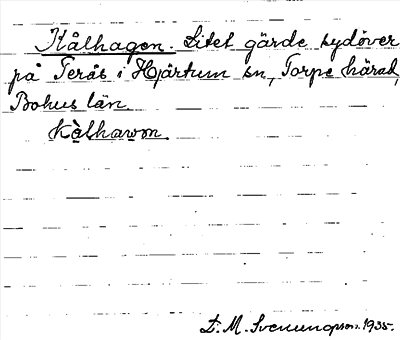 Kålhagen. Litet gärde sydöver
på Terås i Hjärtum sn, Torpe härad,
Bohus län.
Kålhawn.
D. M. Svenungsson. 1935.